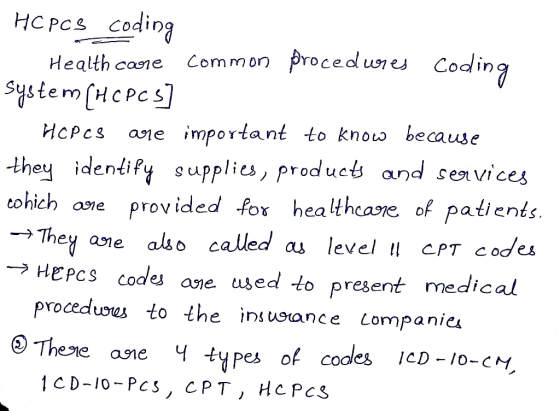 HCPCS coding
Healthcare Common Procedures Coding
System [HCPCS]
HCPCS are important to know because
they identify supplies, products and services
which are provided for healthcare of patients.
→ They are also called as level II CPT codes
→ HCPCS codes are used to present medical
procedures to the insurance companies
② There are 4 types of codes ICD-10-CM,
ICD-10-PCS, CPT, HCPCS